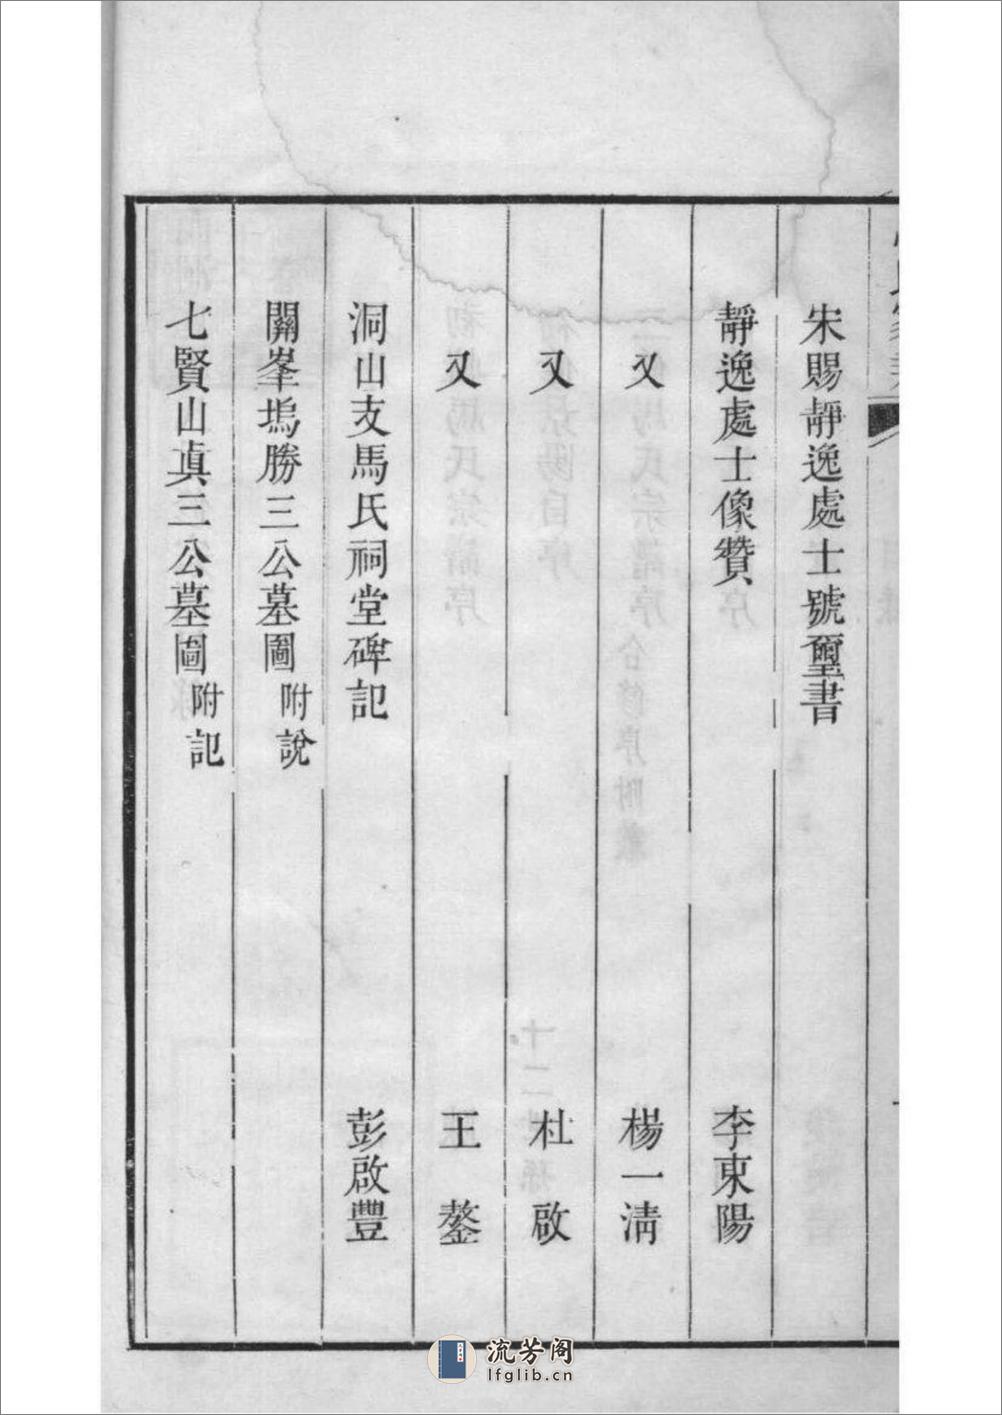 宋賜靜逸處士號璽書
靜逸處士像贊 李東陽
又 楊一清
又 杜啟
又 王鏊
洞山支馬氏祠堂碑記 彭啟豐
關峯塢勝三公墓圖附說
七賢山眞三公墓圖附記
流芳阁
lfglib.cn